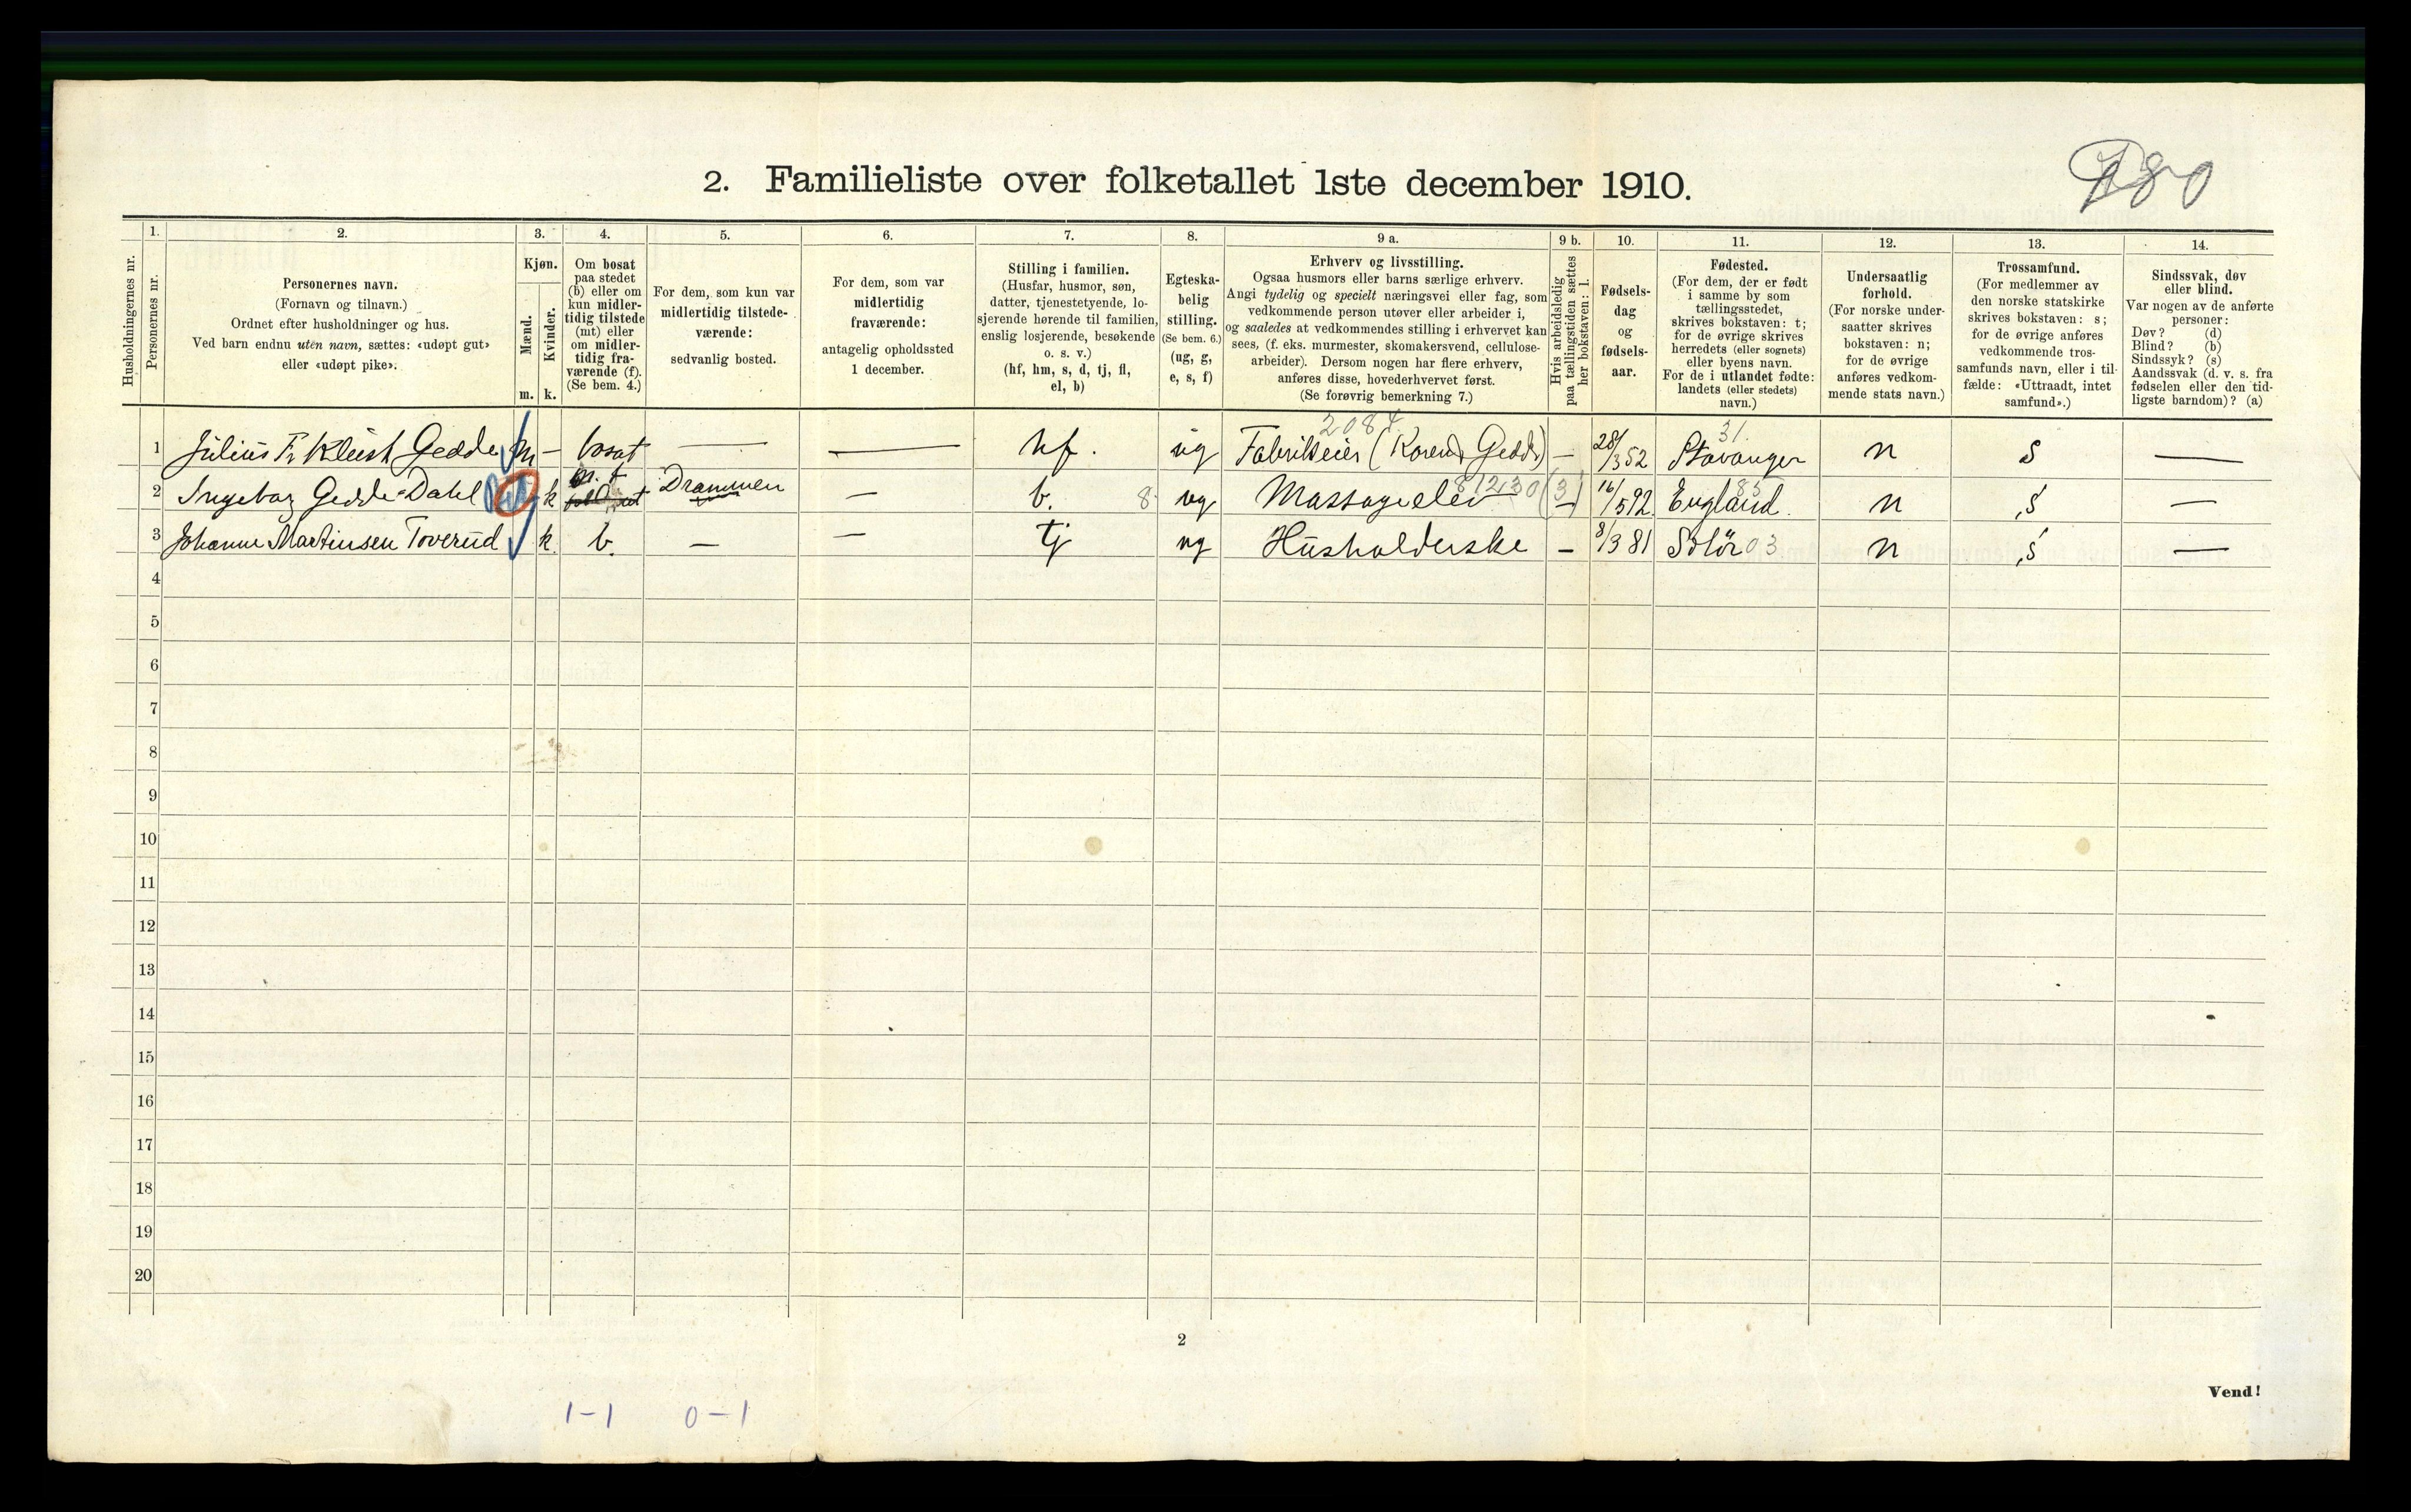 D80
2. Familieliste over folketallet 1ste december 1910.
Husholdningernes nr.
1. Personernes nr.
2. Personernes navn.
(Fornavn og tilnavn.)
Ordnet efter husholdninger og hus.
Ved barn endnu uten navn, sættes: «udøpt gut»
eller «udøpt pike».
3. Kjøn.
Mænd. m.
Kvinder. k.
4. Om bosat
paa stedet
(b) eller om
kun midler-
tidig tilstede
(mt) eller
om midler-
tidig fra-
værende (f).
(Se bem. 4.)
5. For dem, som kun var
midlertidig tilstede-
værende:
sedvanlig bosted.
6. For dem, som var
midlertidig
fraværende:
antagelig opholdssted
1 december.
7. Stilling i familien.
(Husfar, husmor, søn,
datter, tjenestetyende, lo-
sjerende hørende til familien,
enslig losjerende, besøkende
o. s. v.)
(hf, hm, s, d, tj, fl,
el, b)
8. Egteska-
belig
stilling.
(Se bem. 6.)
(ug, g,
e, s, f)
9 a. Erhverv og livsstilling.
Ogsaa husmors eller barns særlige erhverv.
Angi tydelig og specielt næringsvei eller fag, som
vedkommende person utøver eller arbeider i,
og saaledes at vedkommendes stilling i erhvervet kan
sees, (f. eks. murmester, skomakersvend, cellulose-
arbeider). Dersom nogen har flere erhverv,
anføres disse, hovederhvervet først.
(Se forøvrig bemerkning 7.)
9 b. Hvis arbeidsledig
paa tællingstiden sættes
her bokstaven: l.
10. Fødsels-
dag
og
fødsels-
aar.
11. Fødested.
(For dem, der er født
i samme by som
tællingsstedet,
skrives bokstaven: t;
for de øvrige skrives
herredets (eller sognets)
eller byens navn.
For de i utlandet fødte:
landets (eller stedets)
navn.)
12. Undersaatlig
forhold.
(For norske under-
saatter skrives
bokstaven: n;
for de øvrige
anføres vedkom-
mende stats navn.)
13. Trossamfund.
(For medlemmer av
den norske statskirke
skrives bokstaven: s;
for de øvrige anføres
vedkommende tros-
samfunds navn, eller i til-
fælde: «Uttraadt, intet
samfund».)
14. Sindssvak, døv
eller blind.
Var nogen av de anførte
personer:
Døv? (d)
Blind? (b)
Sindssyk? (s)
Aandssvak (d. v. s. fra
fødselen eller den tid-
ligste barndom)? (a)
2084 31.
1 Julius Fr Kleist Gedde m - bosat — — hf. ug Fabrikeier (Koren & Gedde) - 28/3 52 Stavanger n s —
m. t 81230 (3) 85
2 Ingeborg Gedde-Dahl k Drammen — b. 8 ug Massageelev - 16/5 92 England. n s —
3 Johanne Martinsen Toverud k. b. — — tj ug Husholderske - 8/3 81 Solør 03 n s —
4
5
6
7
8
9
10
11
12
13
14
15
16
17
18
19
20
2
Vend!
1-1 0-1